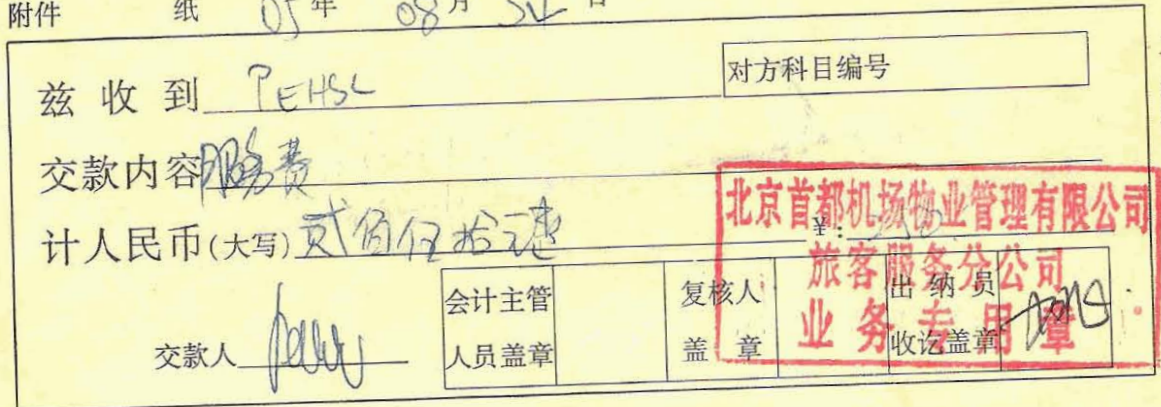 附件 纸 05 年 08 月 日
兹 收 到 PEHSL
对方科目编号
交款内容 服务费
计人民币(大写) 贰佰伍拾元
¥:
北京首都机场物业管理有限公司
旅客服务分公司
业务专用章
交款人
会计主管
人员盖章
复核人
盖 章
出 纳 员
收讫盖章